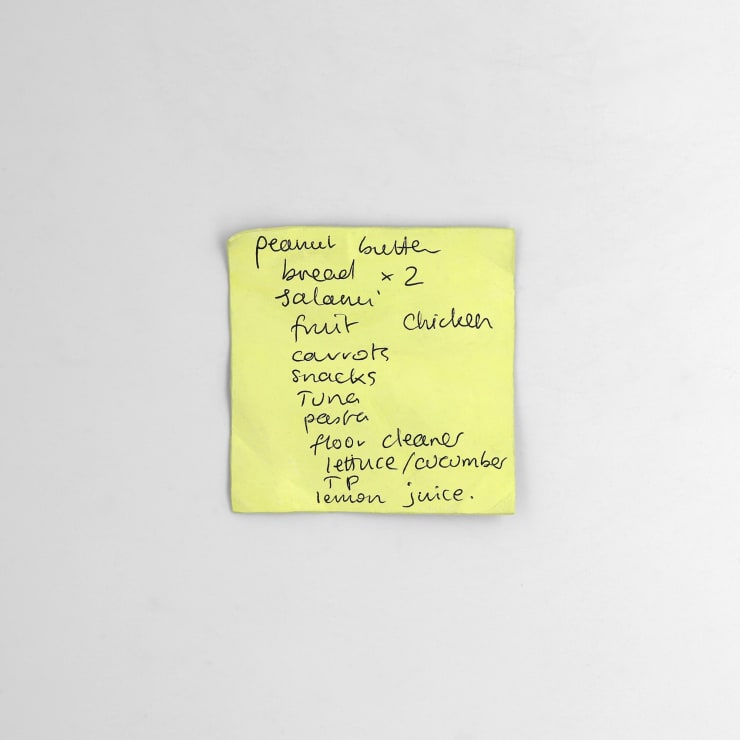 peanut butter
bread × 2
salami
fruit chicken
carrots
snacks
Tuna
pasta
floor cleaner
lettuce/cucumber
TP
lemon juice.